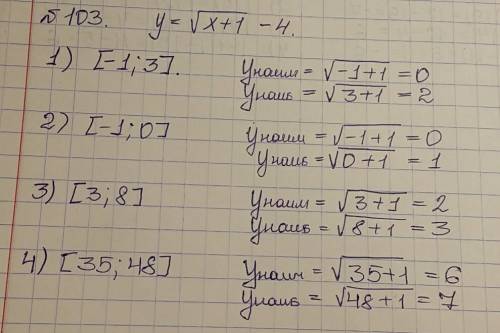 № 103. y = √x+1 - 4.
1) [-1; 3]. Yнаим = √-1+1 = 0
Yнаиб = √3+1 = 2
2) [-1; 0] Yнаим = √-1+1 = 0
Yнаиб = √0+1 = 1
3) [3; 8] Yнаим = √3+1 = 2
Yнаиб = √8+1 = 3
4) [35; 48] Yнаим = √35+1 = 6
Yнаиб = √48+1 = 7